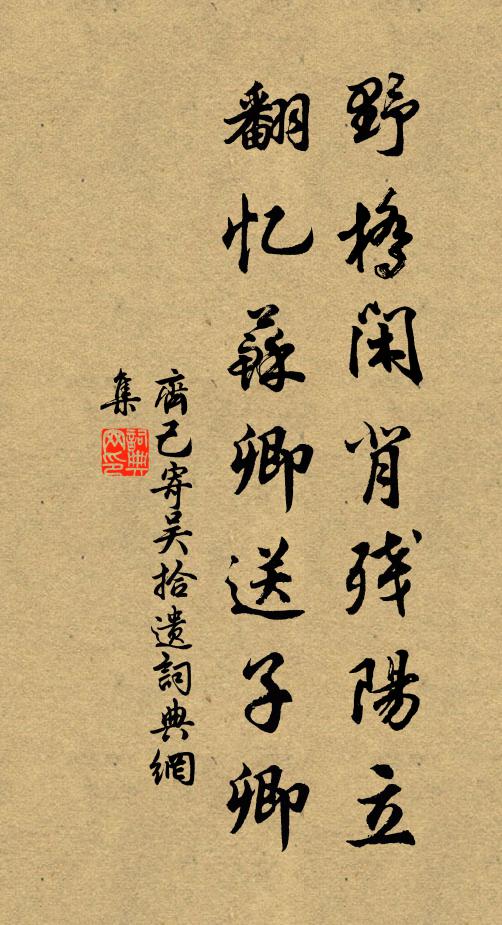 野橋閑背残陽立
翻忆蘇卿送子卿
齊己寄吴拾遺詞典網
集
詞典
网印